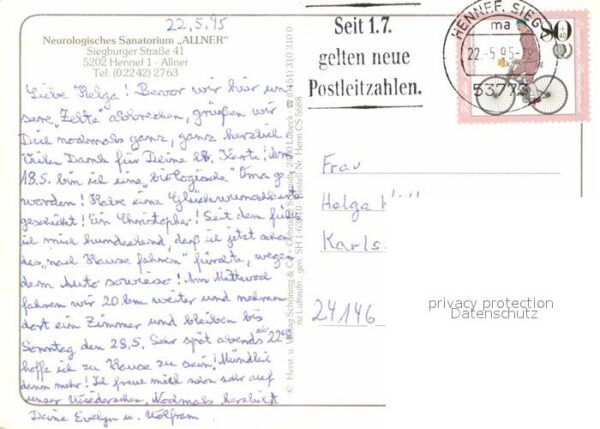 22.5.95
Neurologisches Sanatorium „ALLNER"
Siegburger Straße 41
5202 Hennef 1 - Allner
Tel: (02242) 2763
Liebe Helga! Bevor wir hier un
sere „Zelte" abbrechen, grüßen wir
Dich nochmals ganz, ganz herzlich
Vielen Dank für Deine lb. Karte! Am
18.5. bin ich eine „biologische" Oma ge
worden! Habe eine Glückwunschkarte
geschickt! Ein Christopher! Seit dem fühle
ich mich hundeelend, daß ich jetzt schon
das „nach Hause fahren" fürchte, wegen
dem Auto sowieso! Am Mittwoch
fahren wir 20 km weiter und nehmen
dort ein Zimmer und bleiben bis
Sonntag den 28.5. Sehr spät abends ab 22 Uhr
hoffe ich zu Hause zu sein! Mündlich
dann mehr! Ich freue mich schon sehr auf
unser Wiedersehen, Nochmals herzlichst
Deine Evelyn u. Wolfram
Seit 1.7.
gelten neue
Postleitzahlen.
HENNEF, SIEG
ma
22.-5.95-
53773
80
Frau
Helga
Karls
24146
privacy protection
Datenschutz